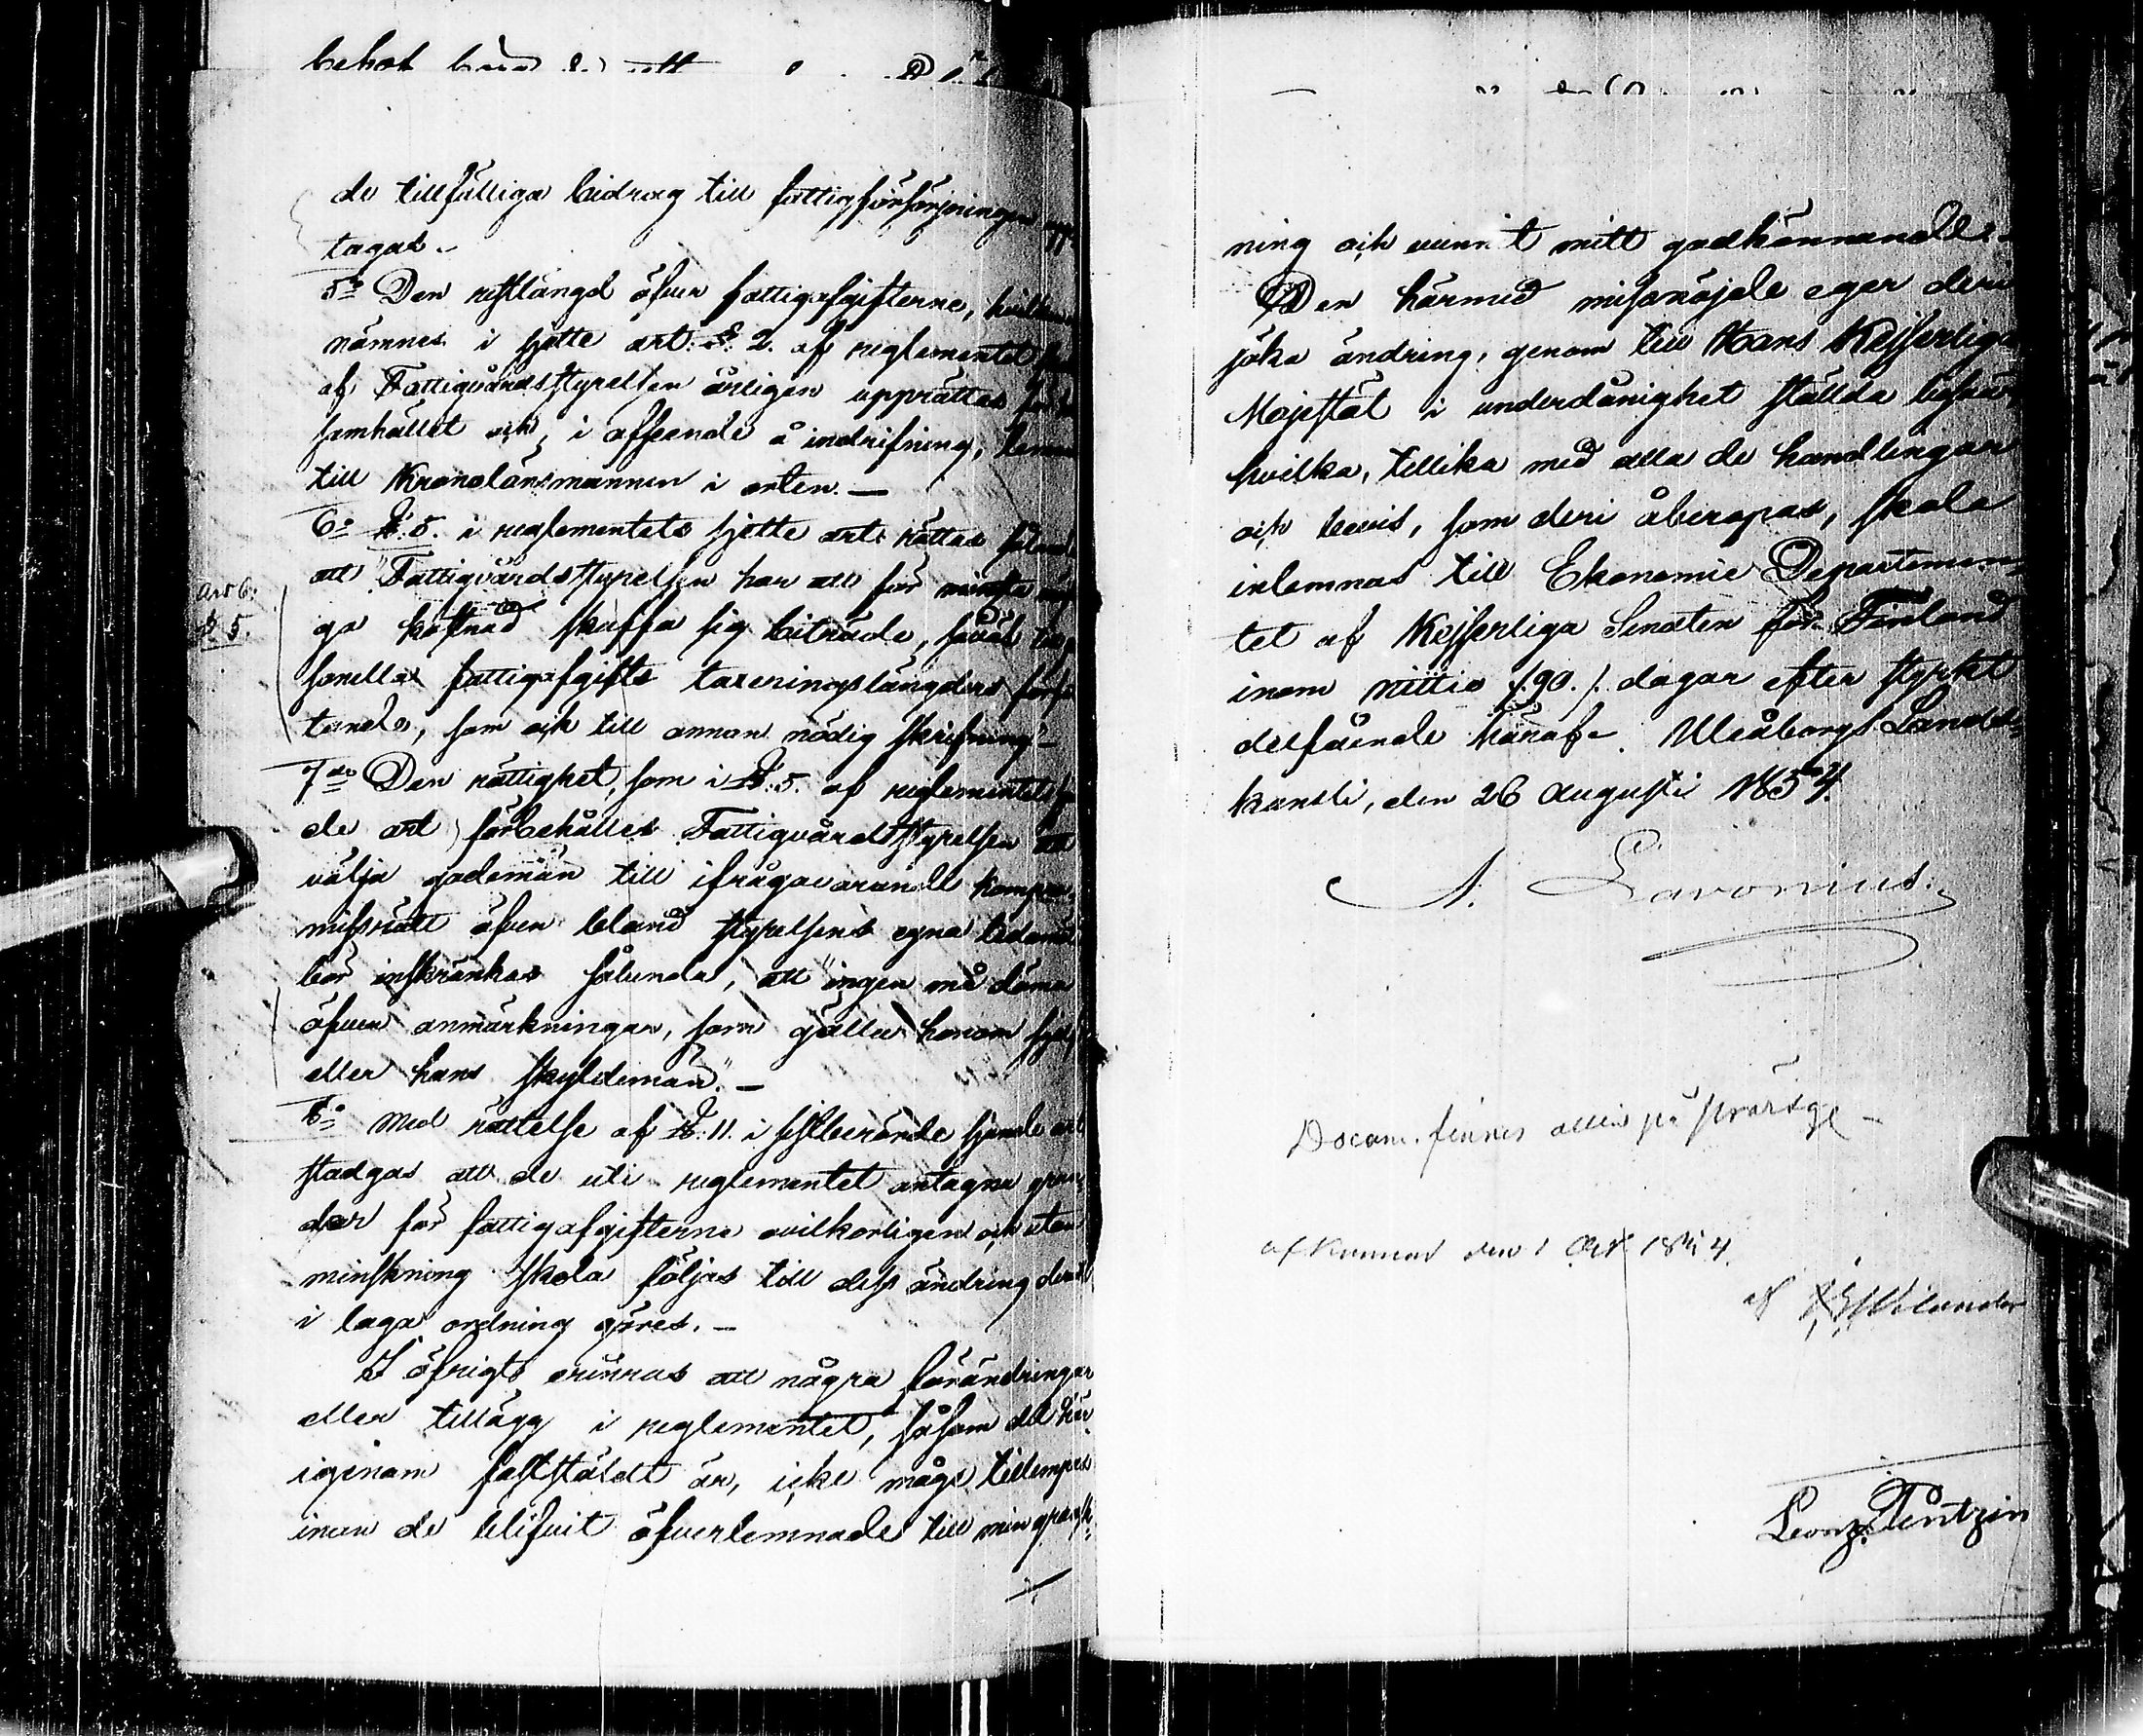 de tillfälliga bidrag till fattigförsörjningen upp
tagas.
5o Den restlängd öfver fattigafgifterne, hvilken
nämnes i sjette art: §. 2. af reglementet
af Fattigvårdsstyrelsen årligen upprättas för
samhället och, i afseende å indrifning,
till Kronolänsmannen i orten. —
6o §. 5. i reglementets sjette art. rättas
att "Fattigvårdsstyrelsen har att för minsta
Art 6.
§ 5.
ga kostnad skaffa sig biträde, såväl till
fattigafgifts taxeringslängders förfat
tande, som ock till annan nödig skrifning"
7o Den rättighet, som i §. 5. af reglementets
de art förbehålles Fattigvårdsstyrelsen att
välja godemän till ifrågavarande kompro
missrätt äfven bland styrelsens egna ledamöt
bör inskränkas sålunda, att "ingen må döma
öfver anmärkningar, som gälla honom sjelf
eller hans skyldemän." —
8o Med rättelse af §. 11. i sistberörde sjunde art
stadgas att de uti reglementet antagna grun
der för fattigafgifterna ovilkorligen och utan
minskning skola följas till dess ändring deruti
i laga ordning göres. —
I öfrigt erinras att några förändringar
eller tillägg i reglementet, såsom det här
igenom fastställdt är, icke måge tillämpas
innan de blifvit öfverlemnade till min gransk-
ning och vunnit mitt godkännande.
Den härmed missnöjde eger deri
söka ändring, genom till Hans Kejserliga
Majestät i underdånighet ställda besvär,
hvilka, tillika med alla de handlingar
och bevis, som deri åberopas, skola
inlemnas till Ekonomie Departemen-
tet af Kejserliga Senaten för Finland
inom nittio /.90./. dagar efter styrkt
delfående häraf. Uleåborgs Lands-
kansli, den 26 Augusti 1854.
A. Lavonius.
Docum. finnes
den 1 Oct 1854.
af